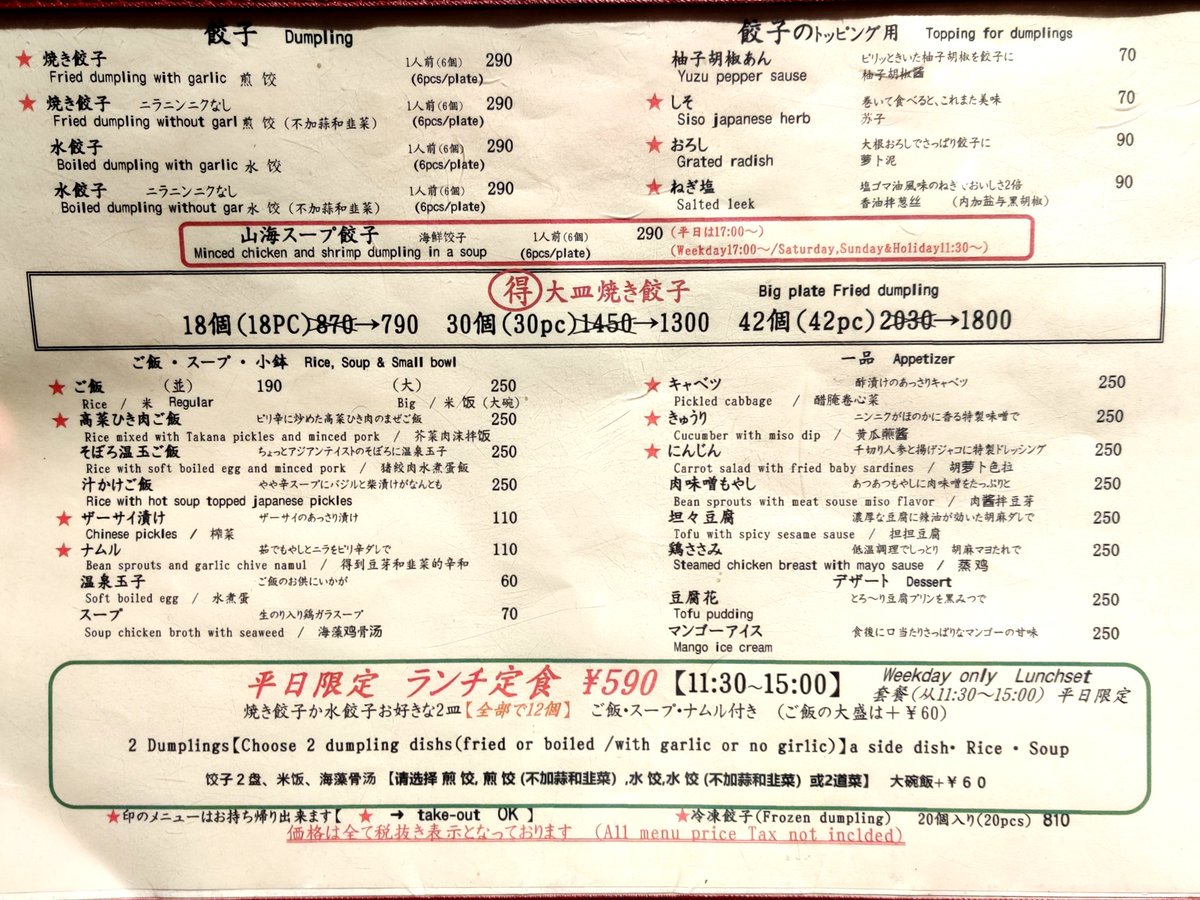 餃子 Dumpling
★ 焼き餃子 1人前(6個) 290
Fried dumpling with garlic 煎 饺 (6pcs/plate)
★ 焼き餃子 ニラニンニクなし 1人前(6個) 290
Fried dumpling without garl 煎 饺 (不加蒜和韭菜) (6pcs/plate)
水餃子 1人前(6個) 290
Boiled dumpling with garlic 水 饺 (6pcs/plate)
水餃子 ニラニンニクなし 1人前(6個) 290
Boiled dumpling without gar 水 饺 (不加蒜和韭菜) (6pcs/plate)
餃子のトッピング用 Topping for dumplings
柚子胡椒あん ピリッときいた柚子胡椒を餃子に 70
Yuzu pepper sause 柚子胡椒酱
★ しそ 巻いて食べると、これまた美味 70
Siso japanese herb 苏子
★ おろし 大根おろしでさっぱり餃子に 90
Grated radish 萝卜泥
★ ねぎ塩 塩ゴマ油風味のねぎでおいしさ2倍 90
Salted leek 香油拌葱丝 (内加盐与黑胡椒)
山海スープ餃子 海鮮饺子 1人前(6個) 290 (平日は17:00～)
Minced chicken and shrimp dumpling in a soup (6pcs/plate) (Weekday17:00～/Saturday,Sunday&Holiday11:30～)
得 大皿焼き餃子 Big plate Fried dumpling
18個(18PC)870→790 30個(30pc)1450→1300 42個(42pc)2030→1800
ご飯・スープ・小鉢 Rice, Soup & Small bowl
★ ご飯 (並) 190 (大) 250
Rice / 米 Regular Big / 米饭(大碗)
★ 高菜ひき肉ご飯 ピリ辛に炒めた高菜ひき肉のまぜご飯 250
Rice mixed with Takana pickles and minced pork / 芥菜肉沫拌饭
そぼろ温玉ご飯 ちょっとアジアンテイストのそぼろに温泉玉子 250
Rice with soft boiled egg and minced pork / 猪绞肉水煮蛋飯
汁かけご飯 やや辛スープにバジルと柴漬けがなんとも 250
Rice with hot soup topped japanese pickles
★ ザーサイ漬け ザーサイのあっさり漬け 110
Chinese pickles / 榨菜
★ ナムル 茹でもやしとニラをピリ辛ダレで 110
Bean sprouts and garlic chive namul / 得到豆芽和韭菜的辛和
温泉玉子 ご飯のお供にいかが 60
Soft boiled egg / 水煮蛋
スープ 生のり入り鶏ガラスープ 70
Soup chicken broth with seaweed / 海藻鸡骨汤
一品 Appetizer
★ キャベツ 酢漬けのあっさりキャベツ 250
Pickled cabbage / 醋腌卷心菜
★ きゅうり ニンニクがほのかに香る特製味噌で 250
Cucumber with miso dip / 黄瓜蘸酱
★ にんじん 千切り人参と揚げジャコに特製ドレッシング 250
Carrot salad with fried baby sardines / 胡萝卜色拉
肉味噌もやし あつあつもやしに肉味噌をたっぷりと 250
Bean sprouts with meat souse miso flavor / 肉酱拌豆芽
坦々豆腐 濃厚な豆腐に辣油が効いた胡麻ダレで 250
Tofu with spicy sesame sause / 担担豆腐
鶏ささみ 低温調理でしっとり 胡麻マヨたれで 250
Steamed chicken breast with mayo sause / 蒸鸡
デザート Dessert
豆腐花 とろ～り豆腐プリンを黒みつで 250
Tofu pudding
マンゴーアイス 食後に口当たりさっぱりなマンゴーの甘味 250
Mango ice cream
平日限定 ランチ定食 ¥590【11:30～15:00】 Weekday only Lunchset
套餐(从11:30～15:00) 平日限定
焼き餃子か水餃子お好きな2皿【全部で12個】 ご飯・スープ・ナムル付き (ご飯の大盛は＋￥60)
2 Dumplings【Choose 2 dumpling dishs(fried or boiled /with garlic or no girlic)】a side dish・ Rice ・ Soup
饺子2盘、米饭、海藻骨汤 【请选择 煎饺, 煎饺 (不加蒜和韭菜) ,水饺,水饺 (不加蒜和韭菜) 或2道菜】 大碗飯+￥60
★印のメニューはお持ち帰り出来ます【 ★ → take-out OK 】 ★冷凍餃子(Frozen dumpling) 20個入り(20pcs) 810
価格は全て税抜き表示となっております (All menu price Tax not inclded)